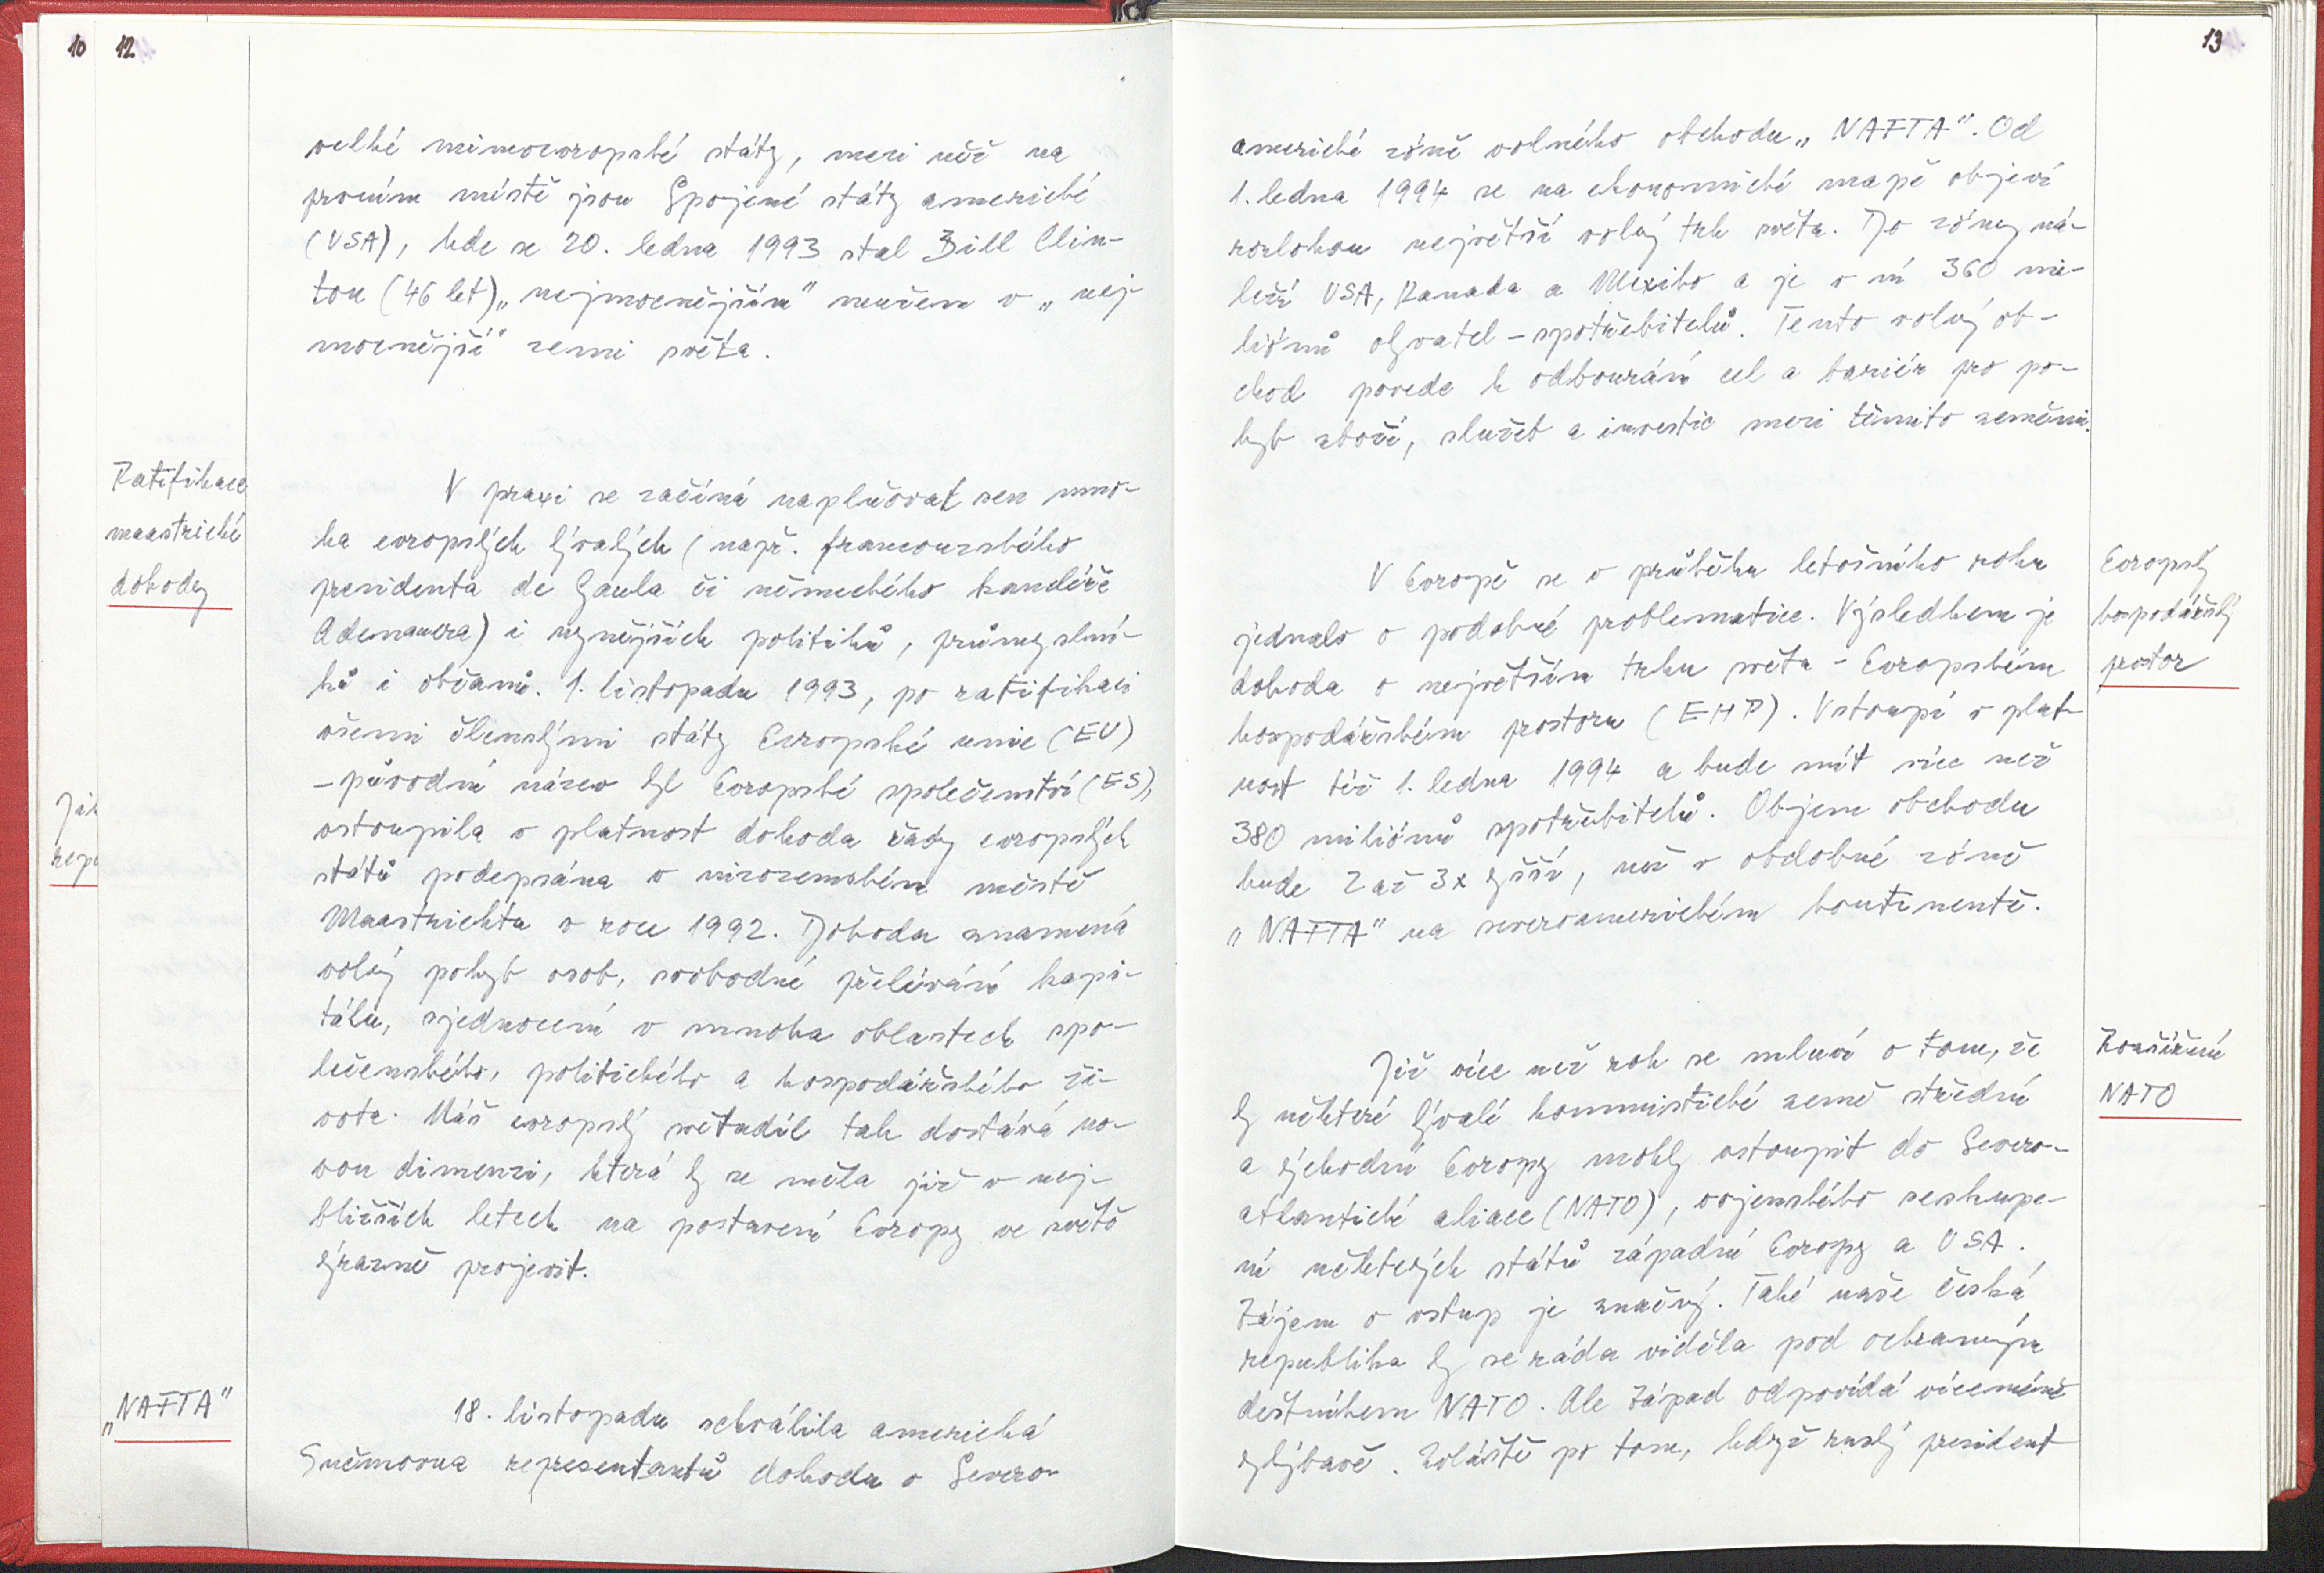 10 12
velké mimoevropské státy, mezi něž na
prvním místě jsou Spojené státy americké
(USA), kde se 20. ledna 1993 stal Bill Clin-
ton (46 let) „nejmocnějším" mužem v „nej-
mocnější" zemi světa.
Ratifikace
maastrické
dohody
V praxi se začíná naplňovat sen mno-
ha evropských bývalých (např. francouzského
presidenta de Gaula či německého kancléře
Adenauera) i nynějších politiků, průmyslní-
ků i občanů. 1. listopadu 1993, po ratifikaci
všemi členskými státy Evropské unie (EU)
- původní název byl Evropské společenství (ES),
vstoupila v platnost dohoda řady evropských
států podepsána v nizozemském městě
Maastrichtu v roce 1992. Dohoda znamená
volný pohyb osob, svobodné přelévání kapi-
tálu, sjednocení v mnoha oblastech spo-
lečenského, politického a hospodářského ži-
vota. Náš evropský světadíl tak dostává no-
vou dimenzi, která by se měla již v nej-
bližších letech na postavení Evropy ve světě
výrazně projevit.
„NAFTA"
18. listopadu schválila americká
Sněmovna representantů dohodu o Severo-
13
americké zóně volného obchodu „NAFTA". Od
1. ledna 1994 se na ekonomické mapě objeví
rozlohou největší volný trh světa. Do zóny ná-
leží USA, Kanada a Mexiko a je v ní 360 mi-
liónů obyvatel - spotřebitelů. Tento volný ob-
chod povede k odbourání cel a bariér pro po-
hyb zboží, služeb a investic mezi těmito zeměmi.
Evropský
hospodářský
prostor
V Evropě se v průběhu letošního roku
jednalo o podobné problematice. Výsledkem je
dohoda o největším trhu světa - Evropském
hospodářském prostoru (EHP). Vstoupí v plat-
nost též 1. ledna 1994 a bude mít více než
380 miliónů spotřebitelů. Objem obchodu
bude 2 až 3x vyšší, než v obdobné zóně
„NAFTA" na severoamerickém kontinentě.
Rozšíření
NATO
Již více než rok se mluví o tom, že
by některé bývalé kommunistické země střední
a východní Evropy mohly vstoupit do Severo-
atlantické aliace (NATO), vojenského seskupe-
ní některých států západní Evropy a USA.
Zájem o vstup je značný. Také naše česká
republika by se ráda viděla pod ochranným
deštníkem NATO. Ale Západ odpovídá víceméně
vyhýbavě. Zvláště po tom, když ruský president